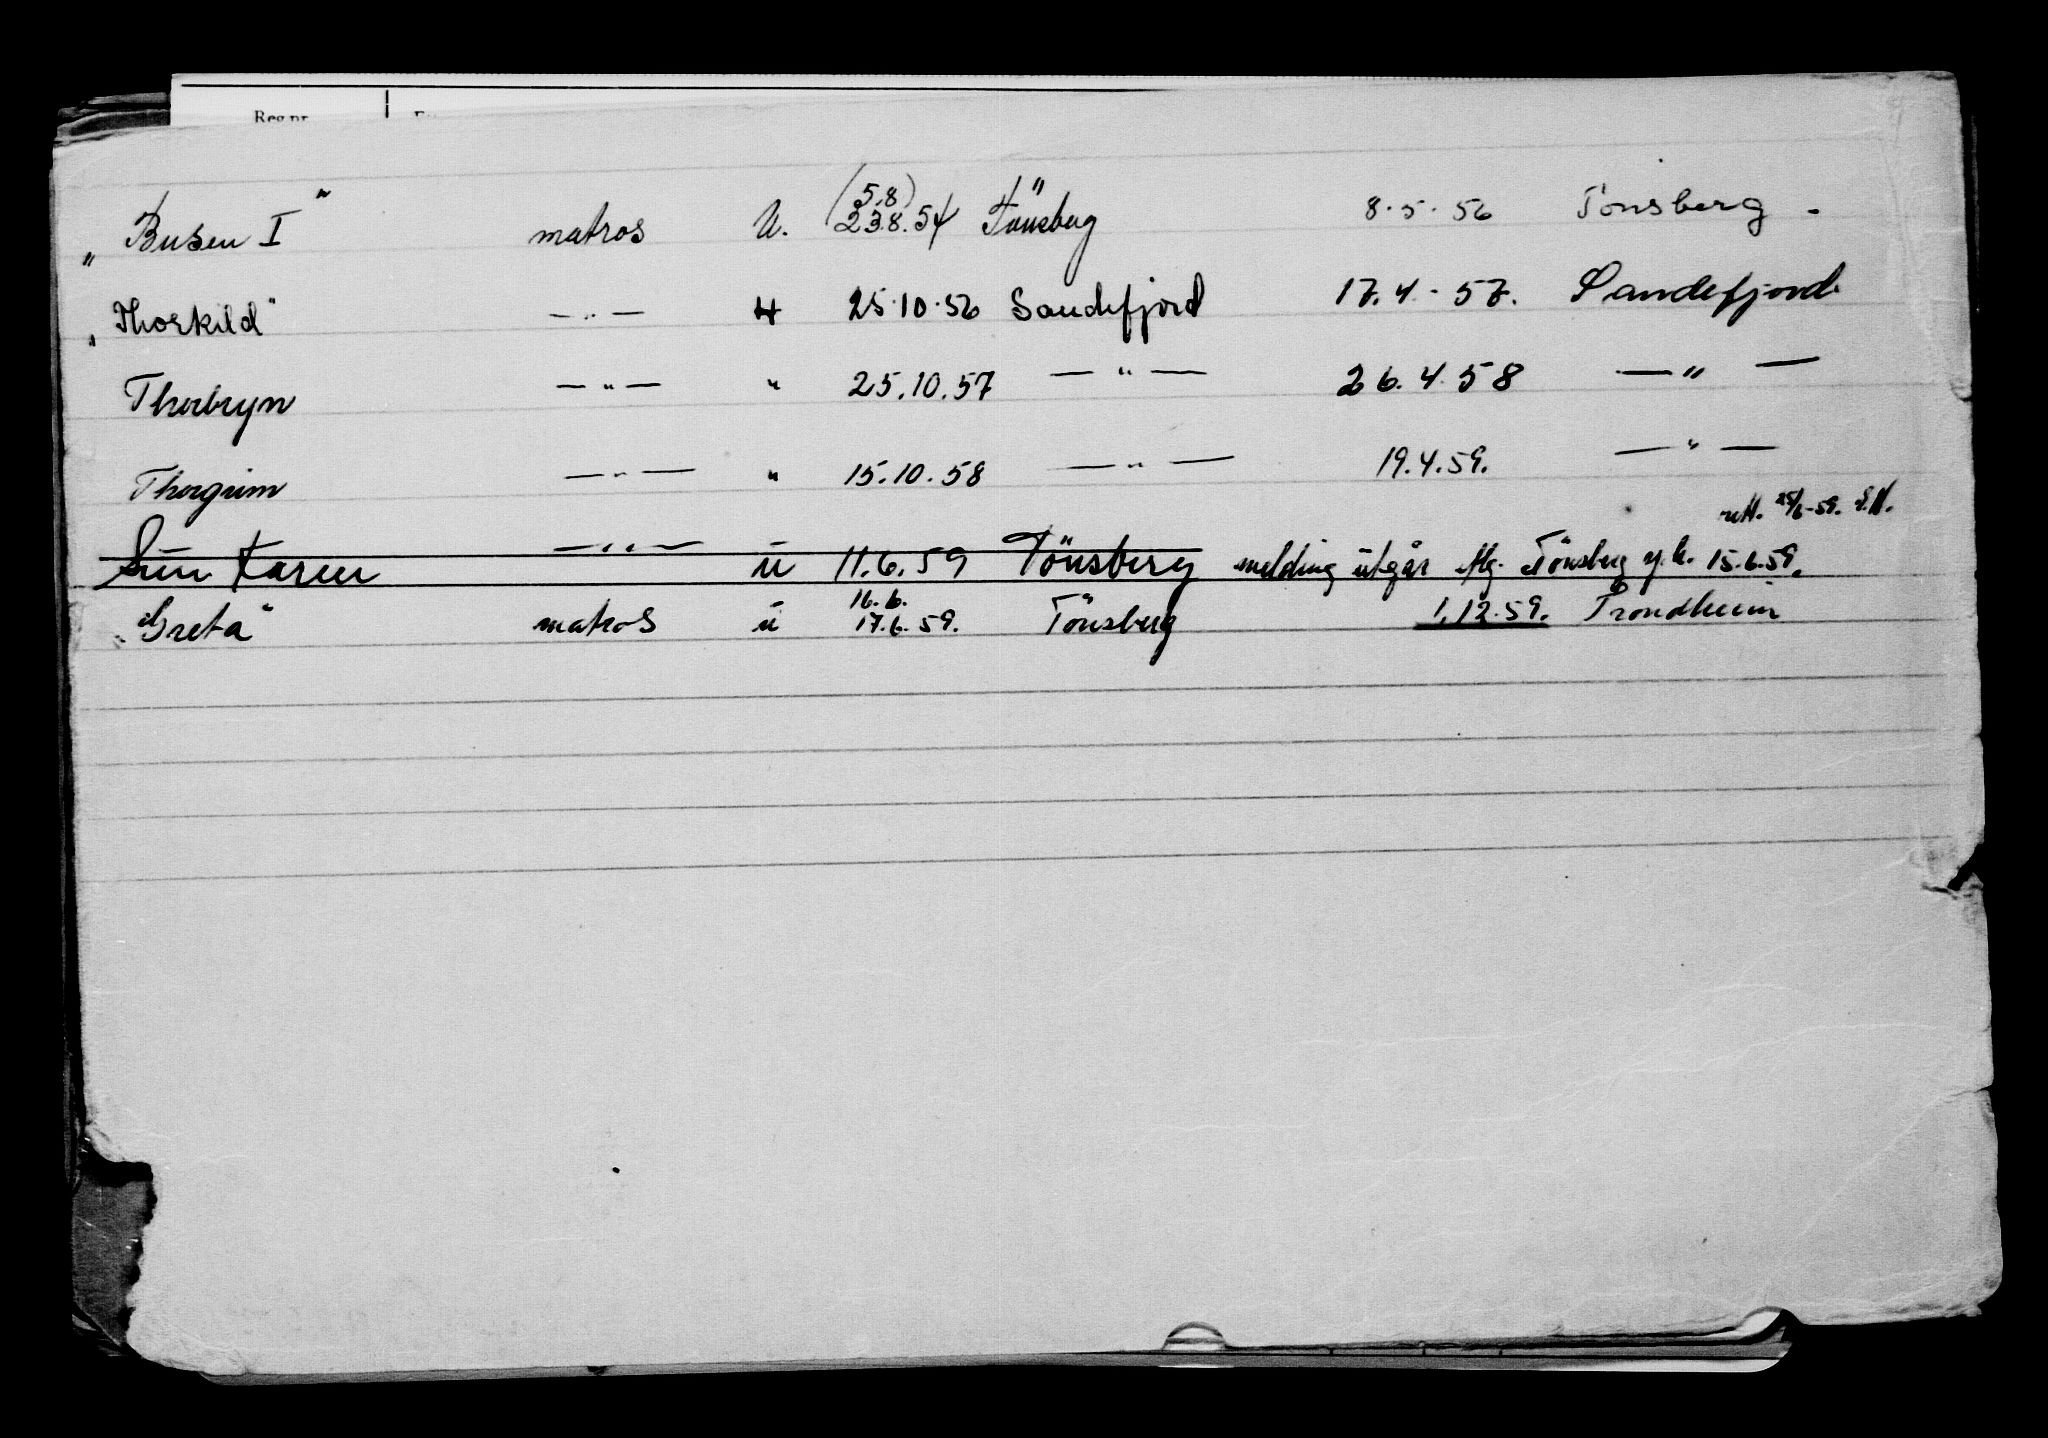 Reg.nr.
„Busen I" matros U. (5.8) 23.8.54 Tönsberg 8.5.56 Tönsberg.
„Thorkild" —"— U 25.10.56 Sandefjord 17.4.57. Sandefjord
Thorbryn —"— " 25.10.57 —"— 26.4.58 —"—
Thorgrim —"— " 15.10.58 —"— 19.4.59. —"—
rett. 25/6-59. S.N.
Sun Karen —"— u 11.6.59 Tönsberg melding utgår flg. Tönsberg 15.6.59.
16.6.
„Greta" matros u 17.6.59. Tönsberg 1.12.59. Trondheim